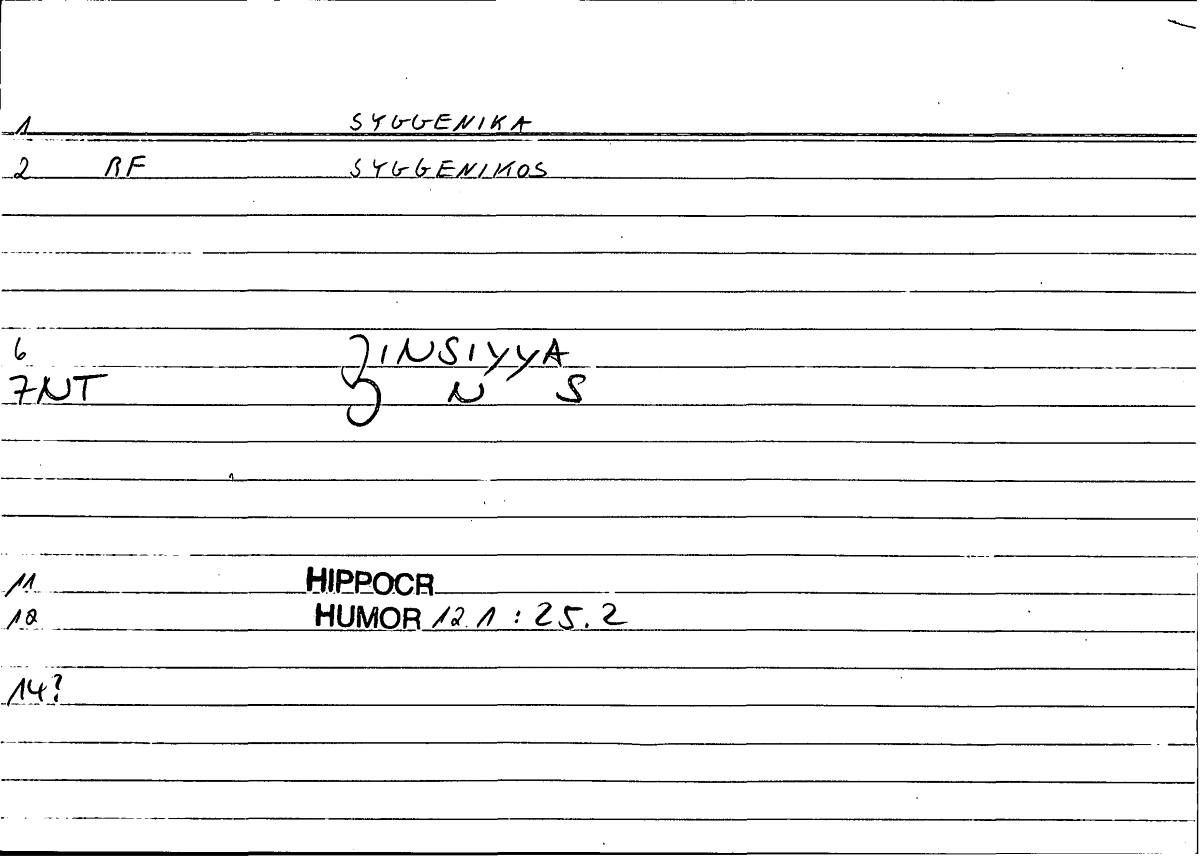 1 SYGGENIKA
2 RF SYGGENIKOS
6 ǮINSIYYA
7NT Ǯ N S
11 HIPPOCR
12 HUMOR 12.1 : 25.2
14?